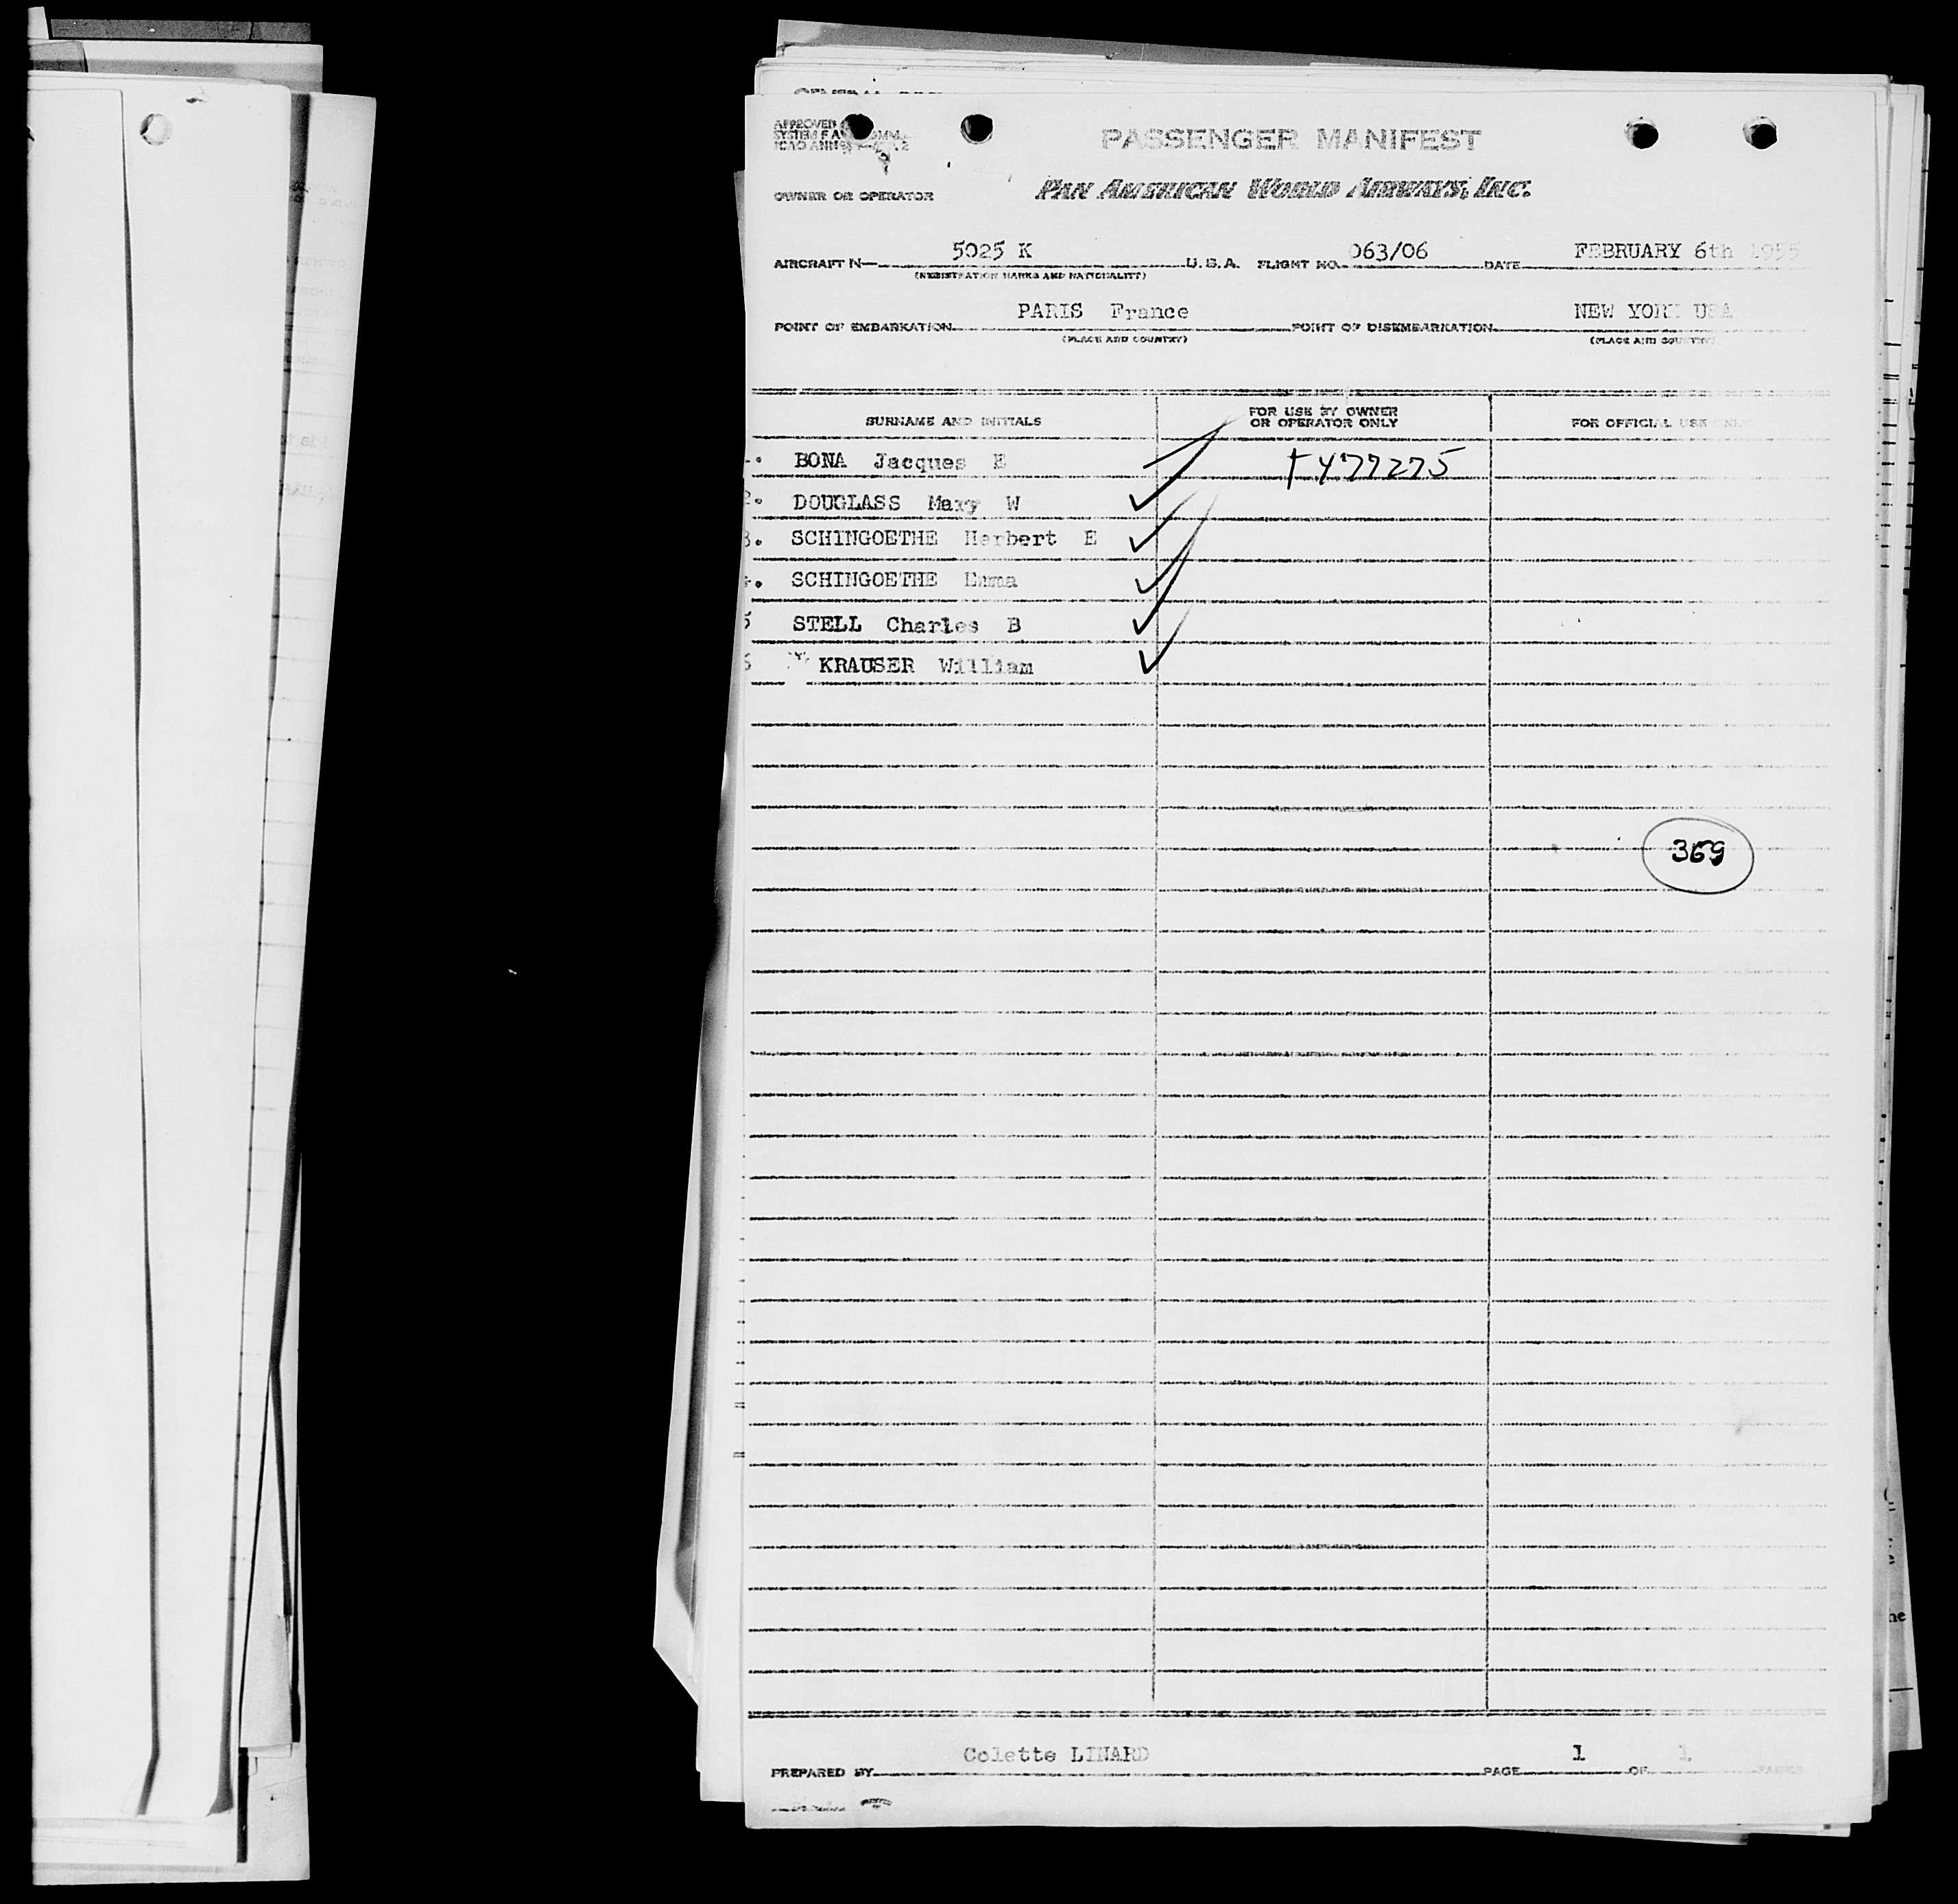 PASSENGER MANIFEST
OWNER OR OPERATOR PAN AMERICAN WORLD AIRWAYS, INC.
AIRCRAFT N— 5025 K U.S.A. FLIGHT NO. 063/06 DATE FEBRUARY 6th 1955
(REGISTRATION MARKS AND NATIONALITY)
POINT OF EMBARKATION PARIS France POINT OF DISEMBARKATION NEW YORK USA
(PLACE AND COUNTRY) (PLACE AND COUNTRY)
SURNAME AND INITIALS FOR USE BY OWNER OR OPERATOR ONLY FOR OFFICIAL USE ONLY
BONA Jacques E
2. DOUGLASS Mary W
3. SCHINGOETHE Herbert E
SCHINGOETHE Emma
5 STELL Charles B
6 KRAUSER William
369
Colette LINARD
PREPARED BY PAGE 1 OF 1 PAGES